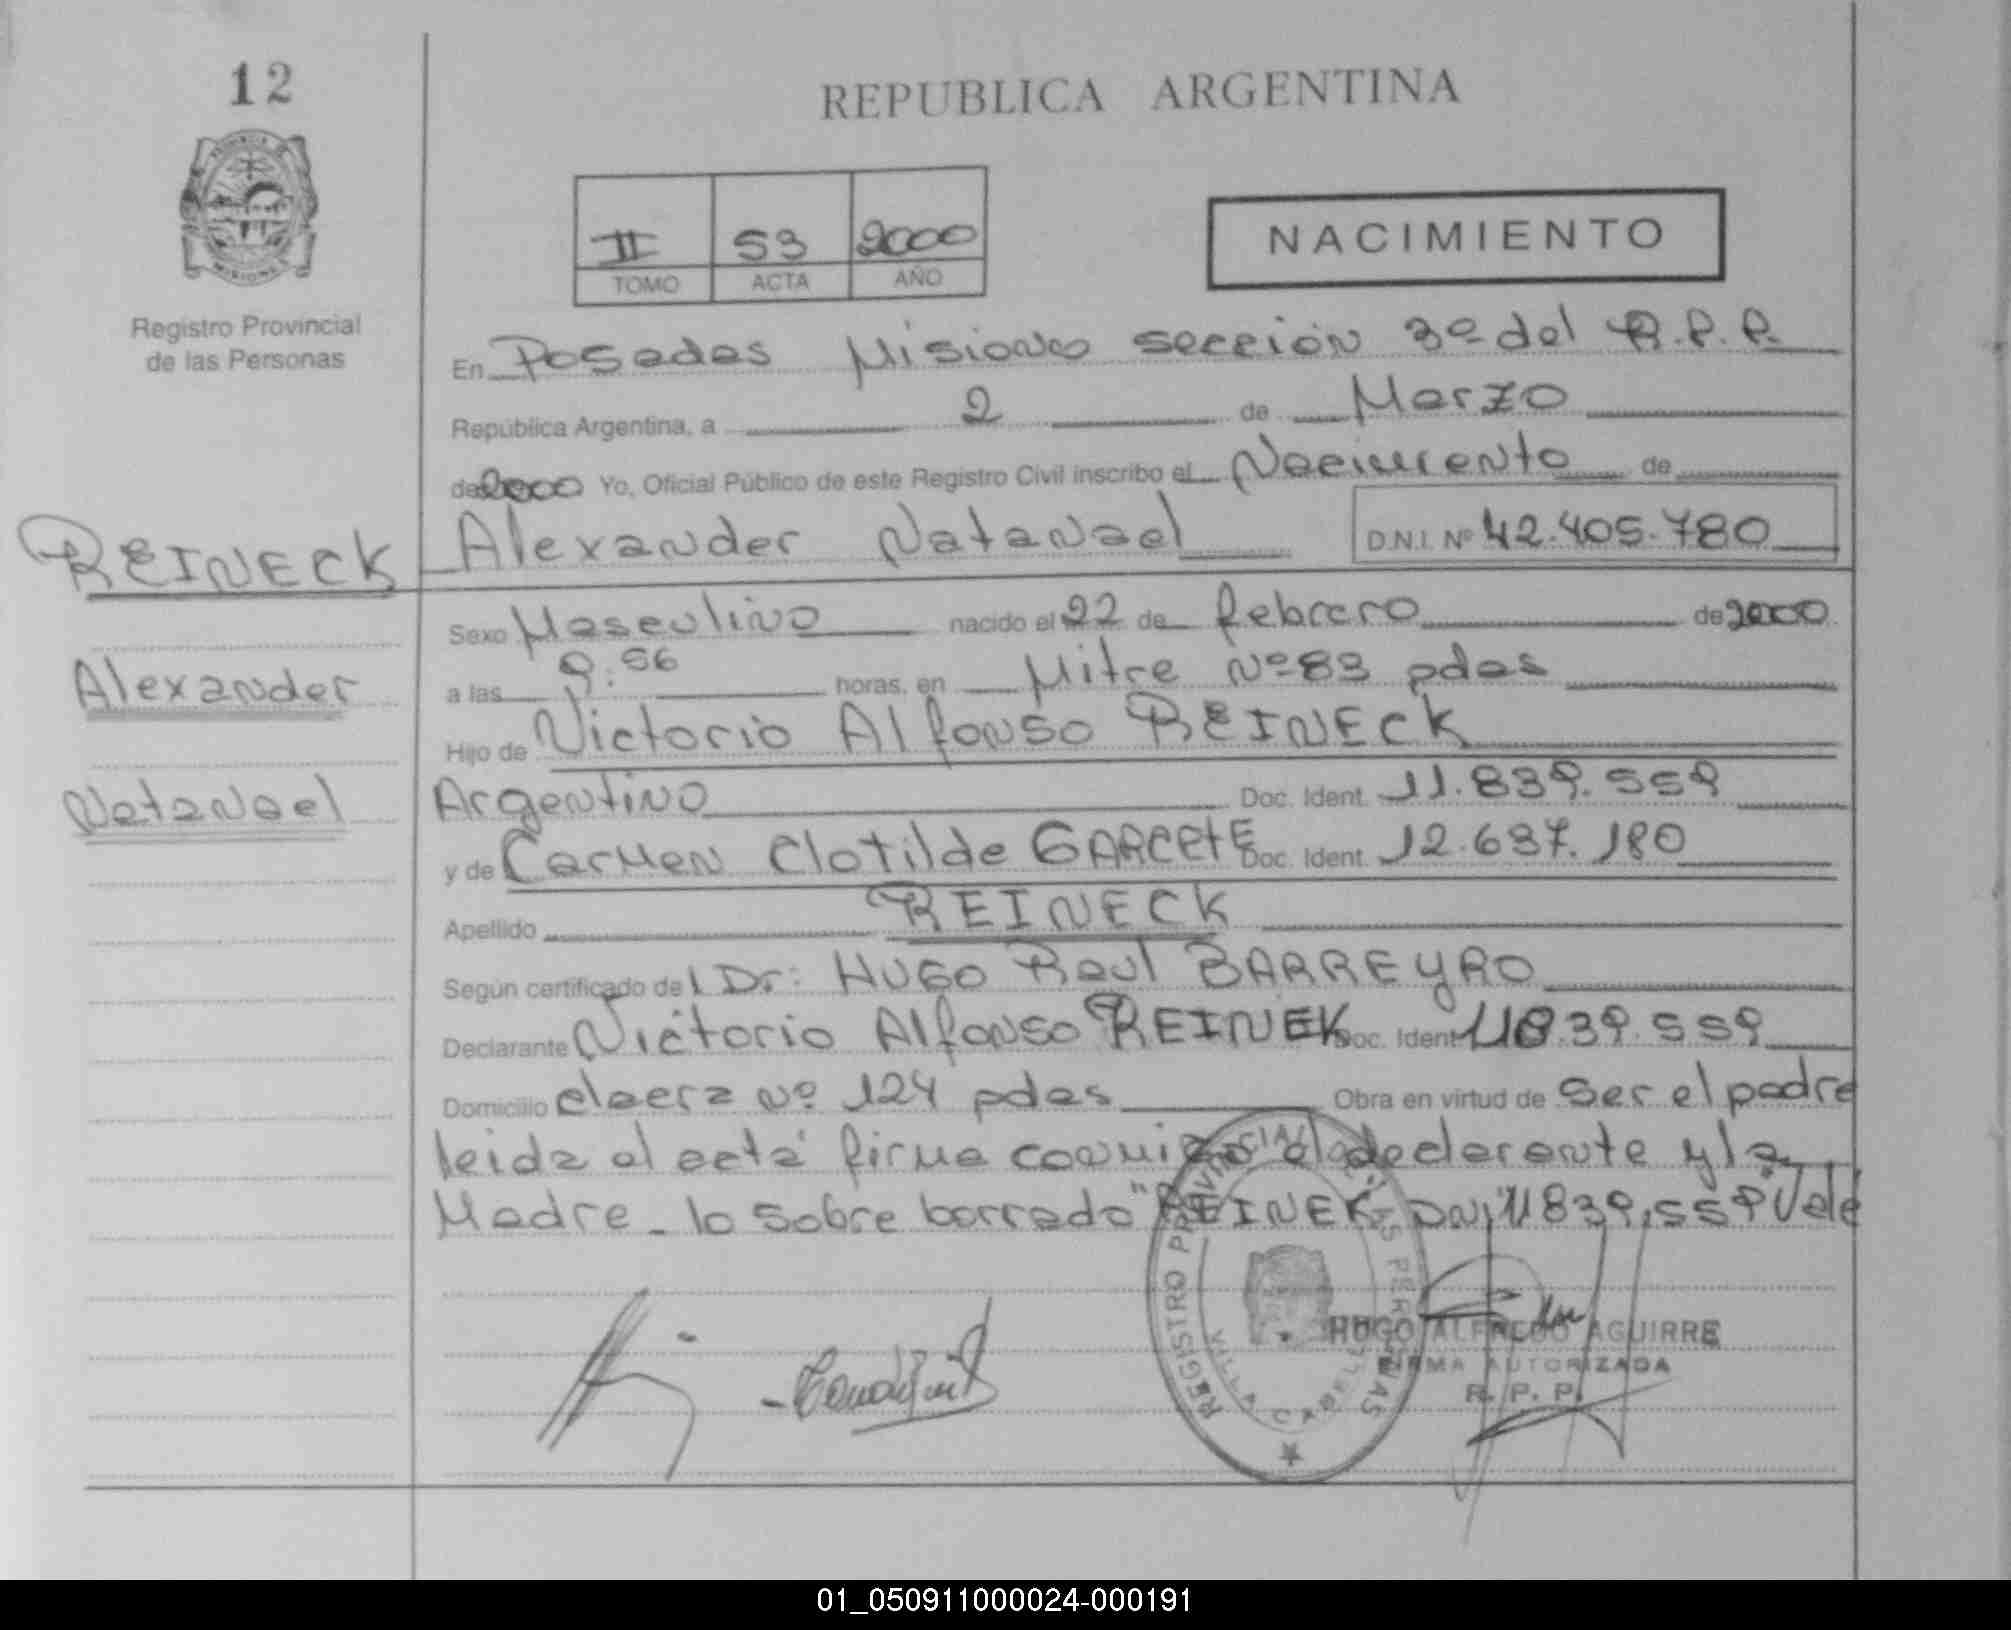 12
REPUBLICA ARGENTINA
II 53 2000
TOMO ACTA AÑO
NACIMIENTO
Registro Provincial
de las Personas
En Posadas Misiones sección 3º del R.P.P.
República Argentina, a 2 de Marzo
de 2000 Yo, Oficial Público de este Registro Civil inscribo el Nacimiento de
REINECK Alexander Natanael D.N.I. Nº 42.405.780
Sexo Masculino nacido el 22 de febrero de 2000
Alexander
a las 9:56 horas, en Mitre Nº 83 pdas
Hijo de Victorio Alfonso REINECK
Natanael
Argentino Doc. Ident. 11.839.559
y de Carmen Clotilde GARCETE Doc. Ident. 12.637.180
Apellido REINECK
Según certificado del Dr: HUGO Raul BARREYRO
Declarante Victorio Alfonso REINEK Doc. Ident 11839.559
Domicilio elaera Nº 124 pdas Obra en virtud de ser el padre
leida el acta firma conmigo el declarante y la
Madre - lo sobre borrado "REINEK, DNI 11839.559" Vale
REGISTRO PROVINCIAL DE LAS PERSONAS
VILLA CABELLO
HUGO ALFREDO AGUIRRE
FIRMA AUTORIZADA
R. P. P.
01_050911000024-000191